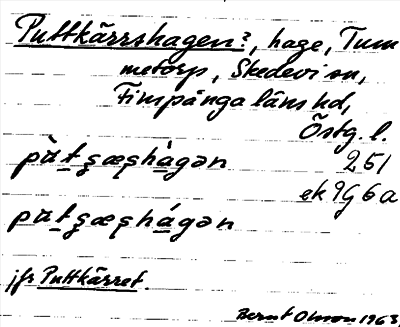 Puttkärrshagen?, hage, Tum
metorp, Skedevi sn,
Finspånga läns hd,
Östg. l.
pùt̲ʂæʂhàgən 251
ek 9G 6a
pùt̲ʂæʂhágən
jfr Puttkärret.
Bernt Olsson 1963